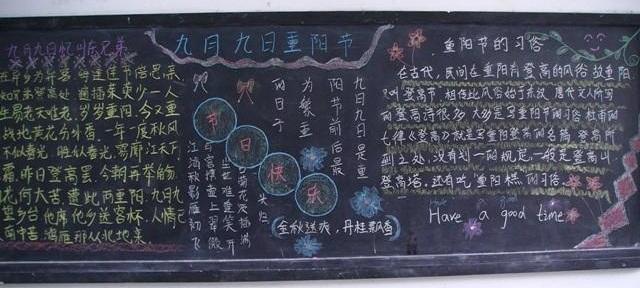 九月九日忆山东兄弟
在异乡为异客 每逢佳节倍思亲
兄弟登高处 遍插茱萸少一人
生易老天难老 岁岁重阳 今又重
战地黄花分外香 一年一度秋风
不似春光 胜似春光 寥廓江天万
霜 昨日登高罢 今朝再举觞
花何太苦 遭此两重阳 九月九
望乡台 他席他乡送客杯 人情已
南中苦 鸿雁那从北地来
九月九日重阳节
节日快乐
九月九日是重
阳节前后最
为隆重
的日子
江涵秋影雁初飞
与客携壶上翠微
尘世难逢笑开
菊花须插满
头归
金秋送爽，丹桂飘香
重阳节的习俗
在古代，民间在重阳有登高的风俗 故重阳
叫登高节 相传此风俗始于东汉 唐代文人所写
的登高诗很多 大多是写重阳节的习俗 杜甫的
七律《登高》就是写重阳登高的名篇 登高所
到之处，没有划一的规范，一般是登高山
登高塔 还有吃重阳糕的习俗
Have a good time